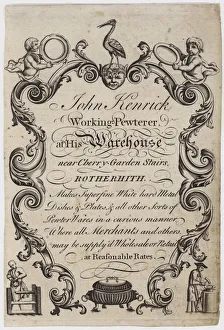 John Kenrick
Working Pewterer,
at His Warehouse
near Cherry-Garden Stairs,
ROTHERHITH.
Makes Superfine White hard Metal
Dishes & Plates, & all other Sorts of
Pewter Wares in a curious manner,
Where all Merchants and others,
may be supply'd Wholesale or Retail
at Reasonable Rates.